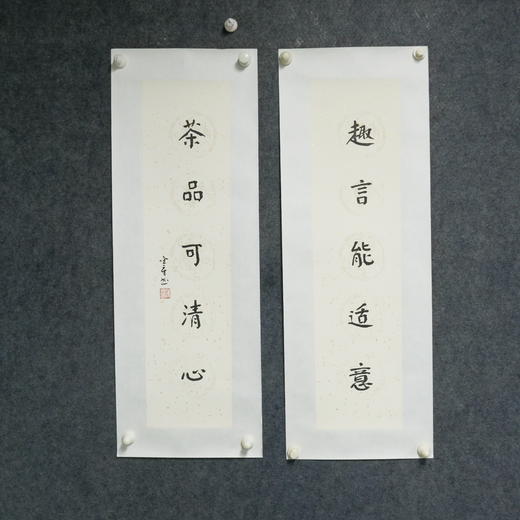 趣言能适意
茶品可清心